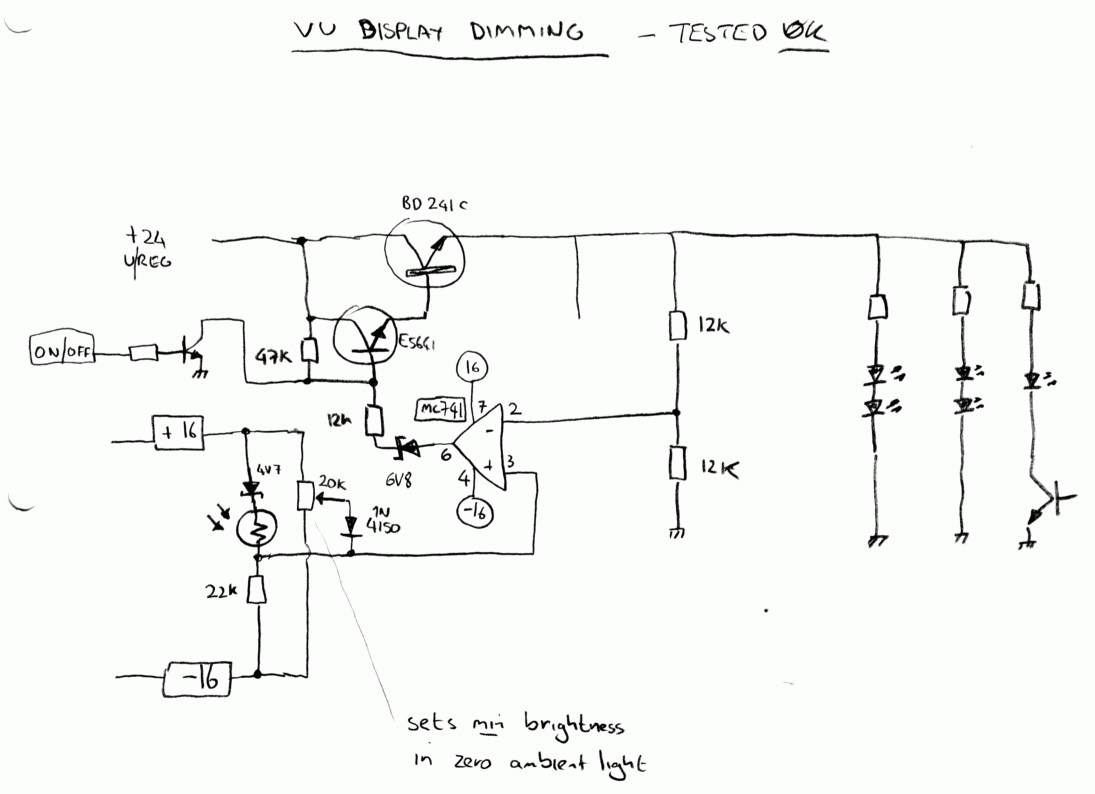 VU DISPLAY DIMMING - TESTED OK
BD241C
+24
U/REG
ON/OFF
47K
E5641
16
12k
MC741
7
2
-
12K
6
+
3
6V8
4
-16
12K
+16
4V7
20K
1N
4150
22K
-16
sets min brightness
in zero ambient light